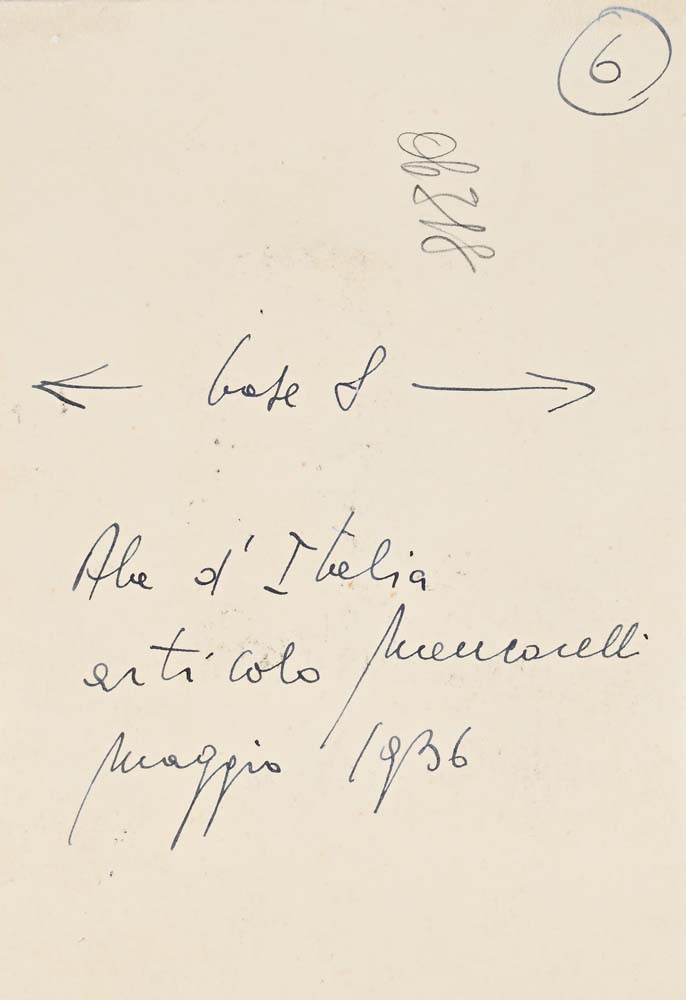 6
base 8
Ala d'Italia
articolo Mencarelli
maggio 1936